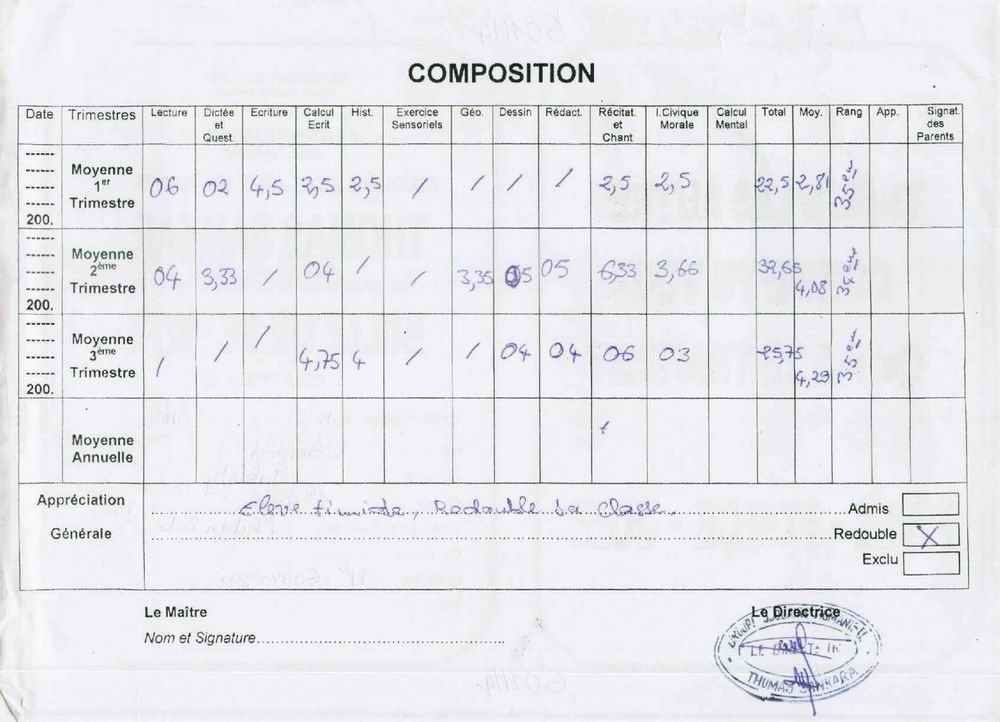 COMPOSITION
Date Trimestres Lecture Dictée et Quest. Ecriture Calcul Ecrit Hist. Exercice Sensoriels Géo. Dessin Rédact. Récitat. et Chant I.Civique Morale Calcul Mental Total Moy. Rang App. Signat. des Parents
Moyenne 1er Trimestre 200. 06 02 4,5 2,5 2,5 / / / / 2,5 2,5 22,5 2,81
Moyenne 2ème Trimestre 200. 04 3,33 / 04 / / 3,35 05 05 6,33 3,66 32,65 4,08
Moyenne 3ème Trimestre 200. / / / 4,75 4 / / 04 04 06 03 25,75 4,29
Moyenne Annuelle
Appréciation Générale
Eleve timide, Redouble sa Classe.
Admis
Redouble X
Exclu
Le Maître
Nom et Signature
Le Directrice
THOMAS SANKARA